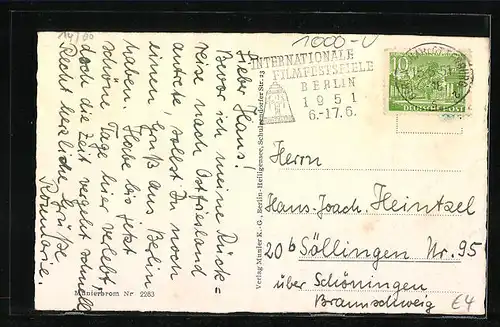 14/60
1000-V
Lieber Hans!
Bevor ich meine Rück=
reise nach Ostfriesland
antrete, sollst Du noch
einen Gruß aus Berlin
haben. Habe bis jetzt
schöne Tage hier verlebt,
doch die Zeit vergeht schnell
Recht herzliche Grüße
Rosmarie.
Münterbrom Nr 2263
Verlag Munier K.-G., Berlin-Heiligensee, Schulzendorfer Str. 23
INTERNATIONALE
FILMFESTSPIELE
BERLIN
1951
6.-17.6.
10
DEUTSCHE POST
Herrn
Hans-Joach. Heintzel
20b Söllingen Nr. 95
über Schöningen
Braunschweig
€4